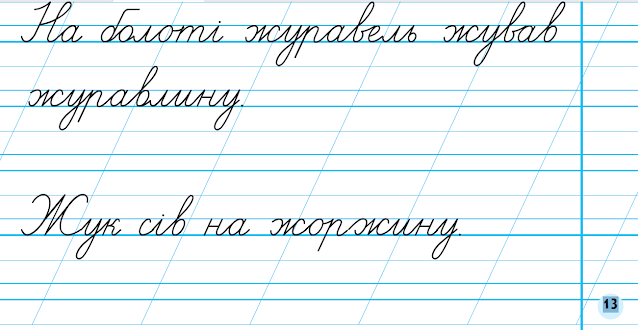 На болоті журавель жував
журавлину.
Жук сів на жоржину.
13